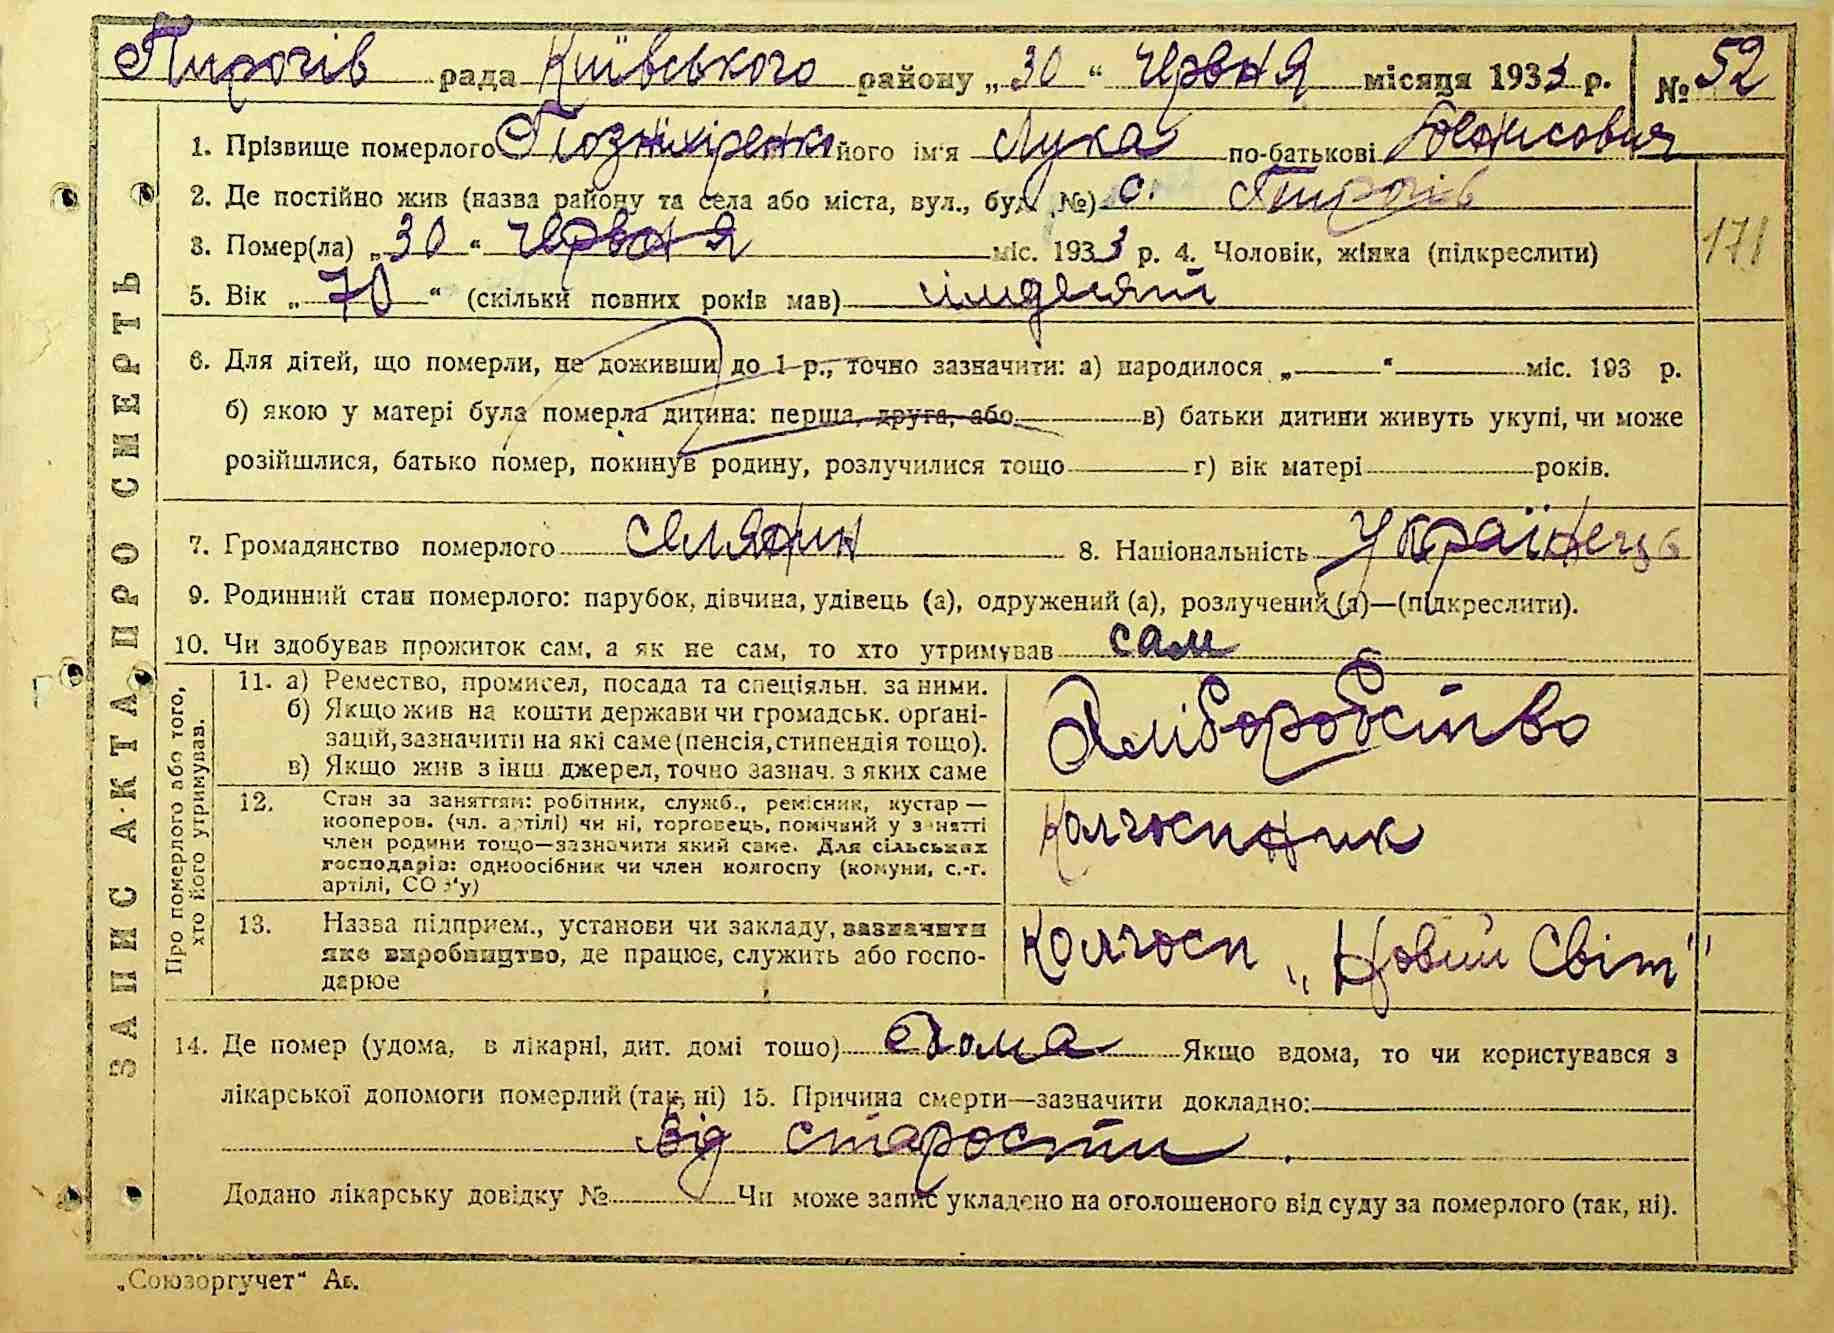 Пирогів рада Київського району „30“ червня місяця 1933 р. № 52
1. Прізвище померлого його ім'я Лука по-батькові
2. Де постійно жив (назва району та села або міста, вул., буд. №) с. Пирогів
3. Помер(ла) „30“ червня міс. 1933 р. 4. Чоловік, жінка (підкреслити)
171
5. Вік „70“ (скільки повних років мав) сімдесят
6. Для дітей, що померли, не доживши до 1 р., точно зазначити: а) народилося „ “ міс. 193 р.
б) якою у матері була померла дитина: перша, друга, або в) батьки дитини живуть укупі, чи може
розійшлися, батько помер, покинув родину, розлучилися тощо г) вік матері років.
7. Громадянство померлого селянин 8. Національність Українець
9. Родинний стан померлого: парубок, дівчина, удівець (а), одружений (а), розлучений (а)—(підкреслити).
10. Чи здобував прожиток сам, а як не сам, то хто утримував сам
ЗАПИС АКТА ПРО СМЕРТЬ
Про померлого або того,
хто його утримував.
11. а) Ремество, промисел, посада та спеціяльн. за ними.
б) Якщо жив на кошти держави чи громадськ. органі-
зацій, зазначити на які саме (пенсія, стипендія тощо).
в) Якщо жив з інш. джерел, точно зазнач. з яких саме
Хліборобство
12. Стан за заняттям: робітник, служб., ремісник, кустар —
кооперов. (чл. артілі) чи ні, торговець, помічний у занятті
член родини тощо—зазначити який саме. Для сільських
господарів: одноосібник чи член колгоспу (комуни, с.-г.
артілі, СОЗ'у)
Колгоспник
13. Назва підприєм., установи чи закладу, зазначити
яке виробництво, де працює, служить або госпо-
дарює
Колгосп „Новий Світ"
14. Де помер (удома, в лікарні, дит. домі тощо) Дома Якщо вдома, то чи користувався з
лікарської допомоги померлий (так, ні) 15. Причина смерти—зазначити докладно:
Від старости.
Додано лікарську довідку № Чи може запис укладено на оголошеного від суду за померлого (так, ні).
„Союзоргучет“